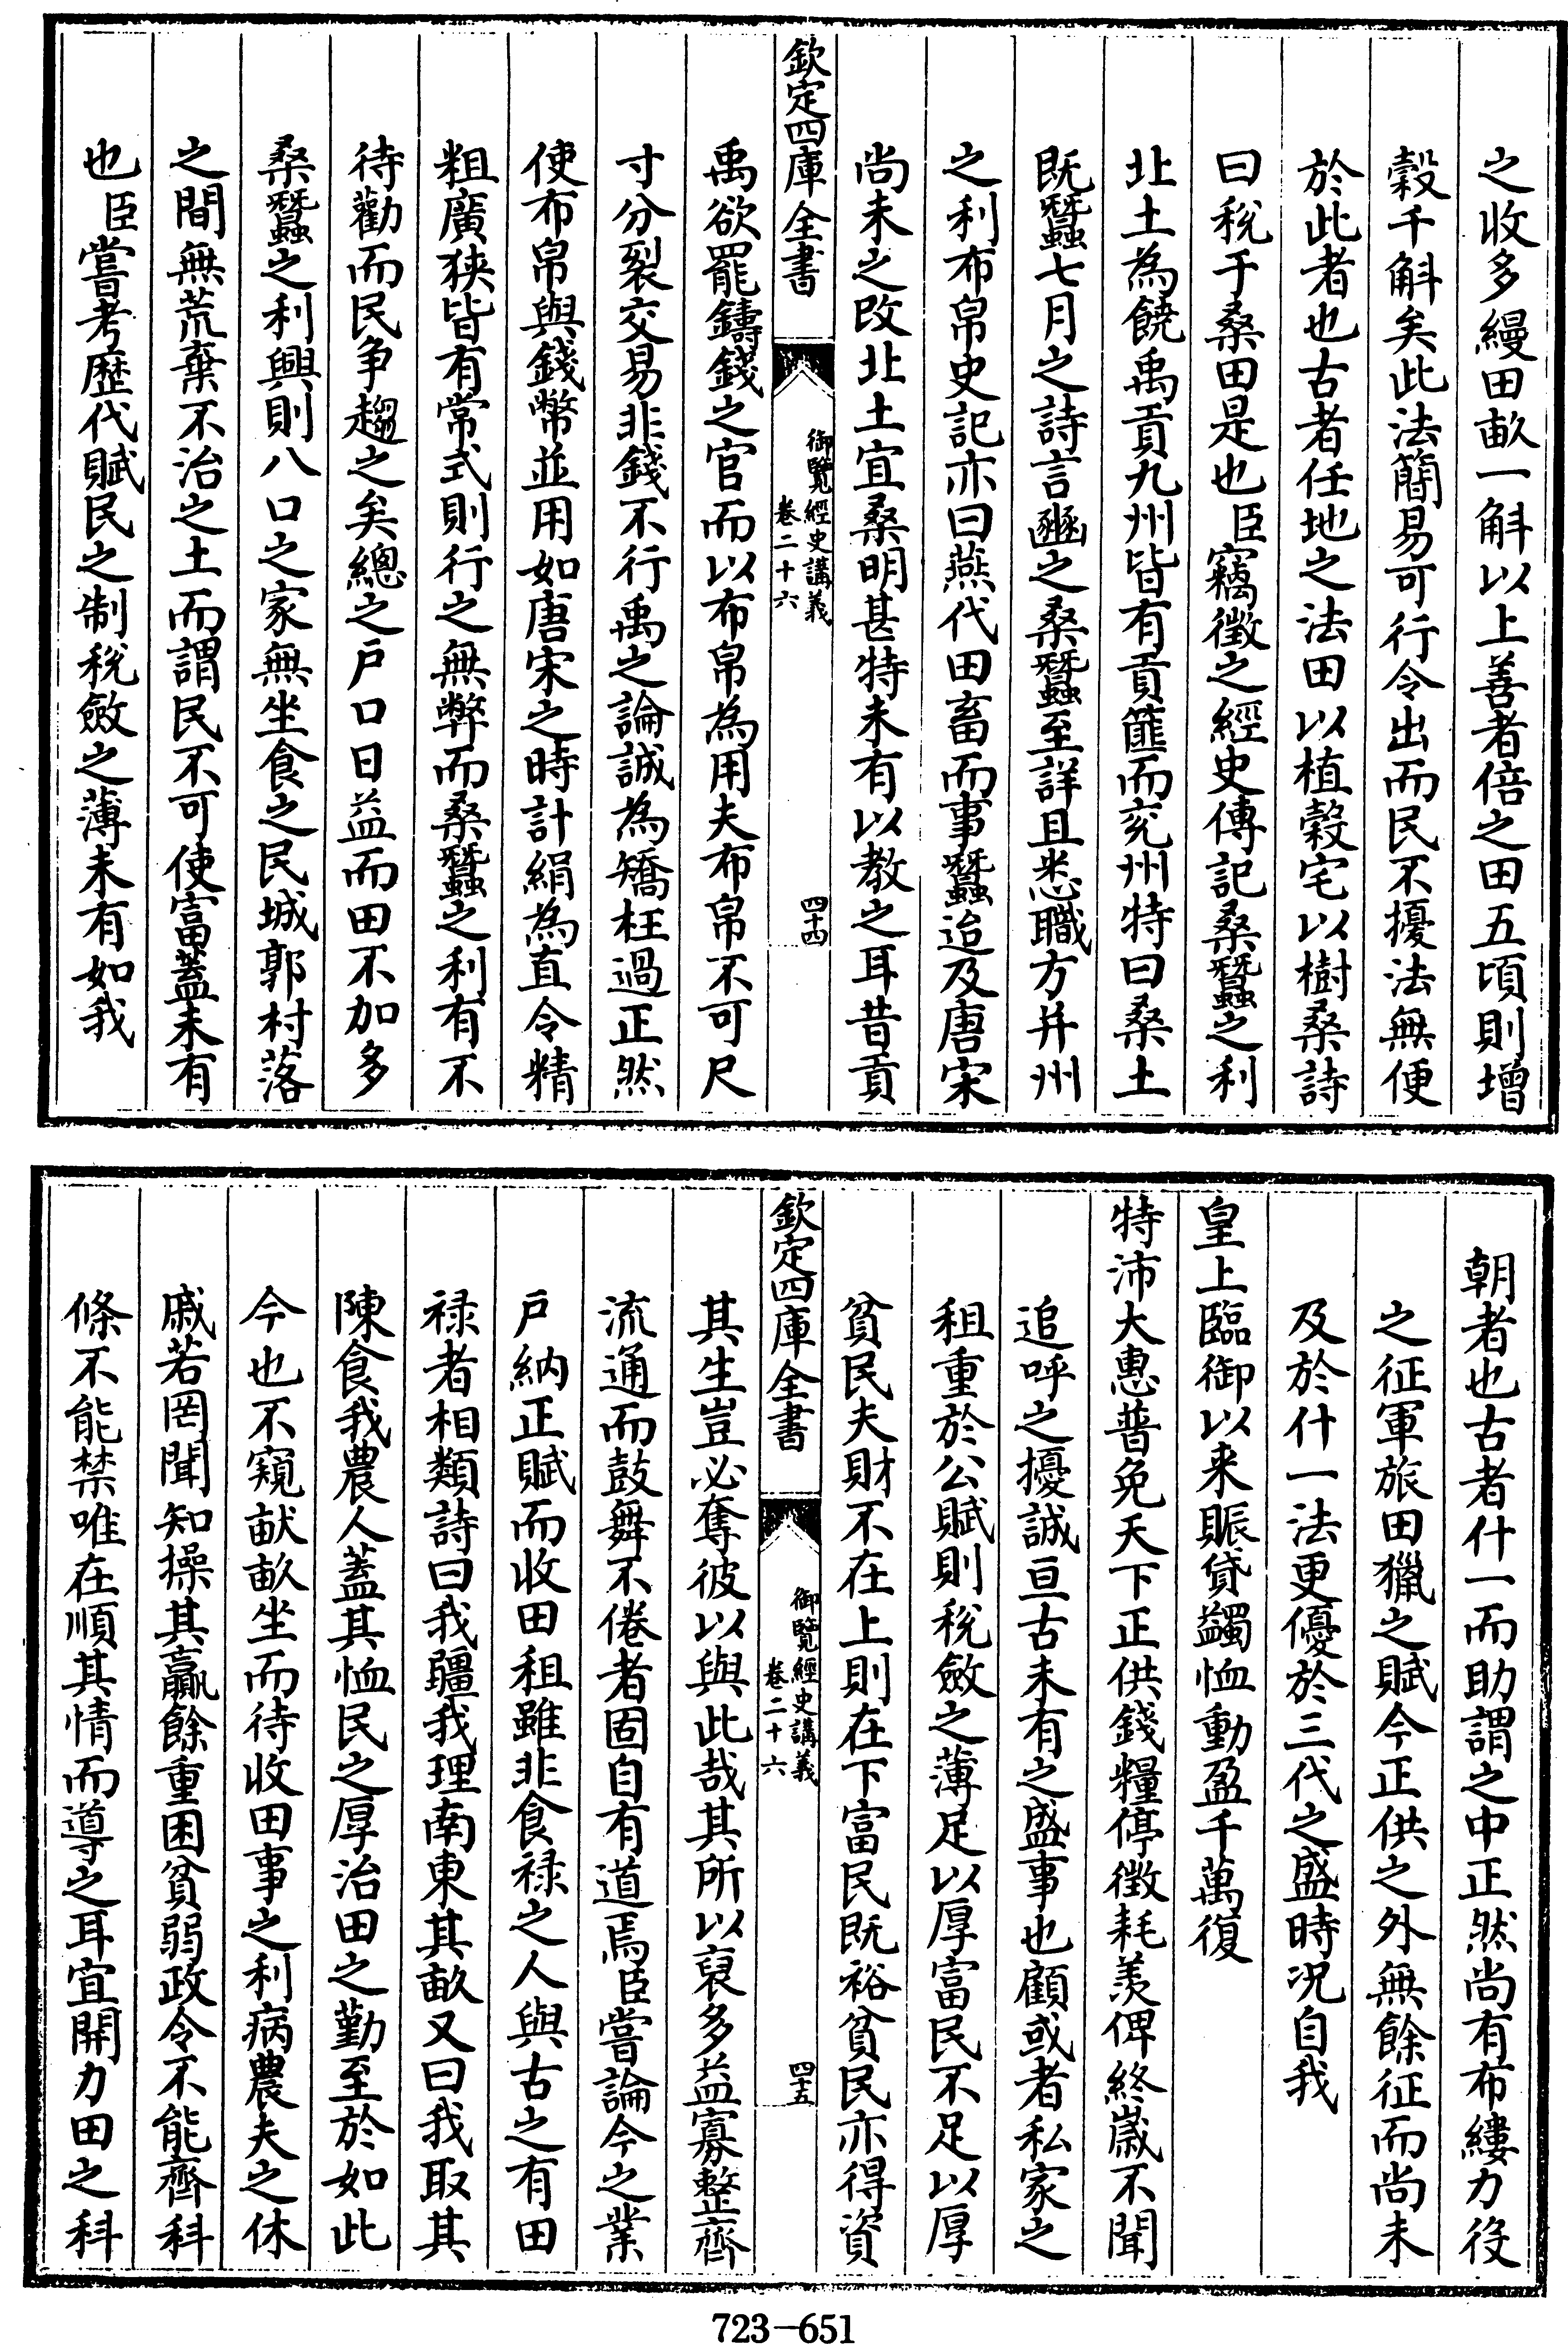 之收多縵田畝一斛以上善者倍之田五頃則增
穀千斛矣此法簡易可行令出而民不擾法無便
於此者也古者任地之法田以植穀宅以樹桑詩
曰稅于桑田是也臣竊徵之經史傳記桑蠶之利
北土為饒禹貢九州皆有貢篚而兖州特曰桑土
既蠶七月之詩言豳之桑蠶至詳且悉職方并州
之利布帛史記亦曰燕代田畜而事蠶迨及唐宋
尚未之改北土宜桑明甚特未有以教之耳昔貢
欽定四庫全書
御覽經史講義
卷二十六
四十四
禹欲罷鑄錢之官而以布帛為用夫布帛不可尺
寸分裂交易非錢不行禹之論誠為矯枉過正然
使布帛與錢幣並用如唐宋之時計絹為直令精
粗廣狹皆有常式則行之無弊而桑蠶之利有不
待勸而民争趨之矣總之戶口日益而田不加多
桑蠶之利興則八口之家無坐食之民城郭村落
之間無荒棄不治之土而謂民不可使富蓋未有
也臣嘗考歷代賦民之制稅斂之薄未有如我
朝者也古者什一而助謂之中正然尚有布縷力役
之征軍旅田獵之賦今正供之外無餘征而尚未
及於什一法更優於三代之盛時况自我
皇上臨御以来賑貸蠲恤動盈千萬復
特沛大惠普免天下正供錢糧停徵耗羡俾終歲不聞
追呼之擾誠亘古未有之盛事也顧或者私家之
租重於公賦則稅斂之薄足以厚富民不足以厚
貧民夫財不在上則在下富民既裕貧民亦得資
欽定四庫全書
御覽經史講義
卷二十六
四十五
其生豈必奪彼以與此哉其所以裒多益寡整齊
流通而鼓舞不倦者固自有道焉臣嘗論今之業
戶納正賦而收田租雖非食禄之人與古之有田
禄者相類詩曰我疆我理南東其畝又曰我取其
陳食我農人蓋其恤民之厚治田之勤至於如此
今也不窺畎畝坐而待收田事之利病農夫之休
戚若罔聞知操其贏餘重困貧弱政令不能齊科
條不能禁唯在順其情而導之耳宜開力田之科
723-651